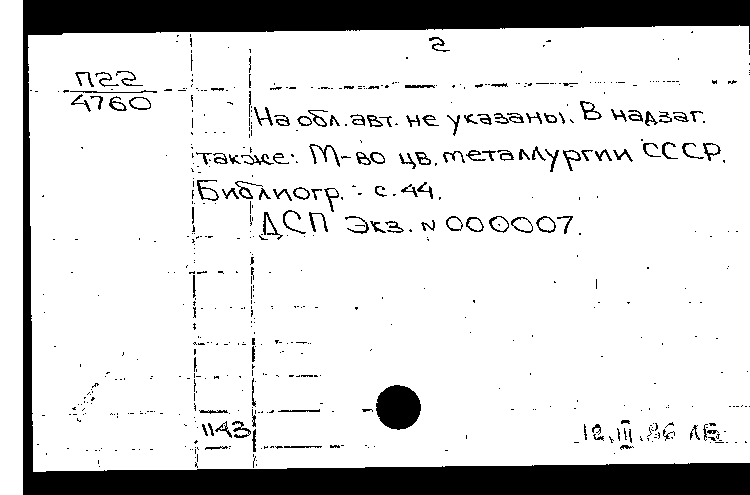 2
П22
4760
На обл. авт. не указаны. В надзаг.
также: М-во цв. металлургии СССР.
Библиогр.: с. 44.
ДСП Экз. N 000007.
1143
12.III.86 ЛБ